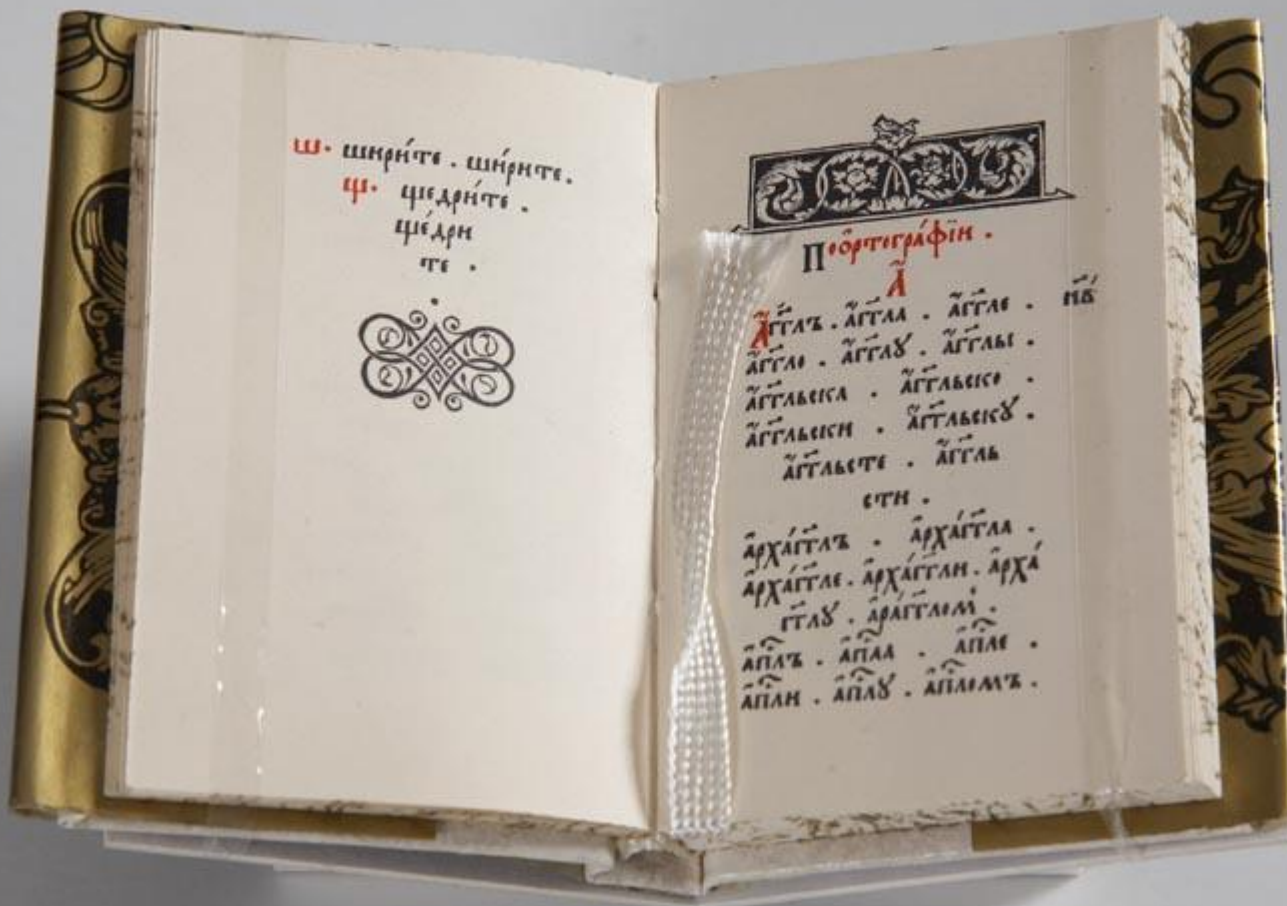 ш. шири́те. ши́рите.
щ. щедри́те.
ще́дри
те.
По ѻ҆ртогра́фїи.
А҃
А҆́гг҃лъ. а҆́гг҃ла. а҆́гг҃ле. мв҃
а҆́гг҃ло. а҆́гг҃лꙋ. а҆́гг҃лы.
а҆́гг҃льска. а҆́гг҃льско.
а҆́гг҃льски. а҆́гг҃льскꙋ.
а҆́гг҃льсте. а҆́гг҃ль
сти.
а҆рха́гг҃лъ. а҆рха́гг҃ла.
а҆рха́гг҃ле. а҆рха́гг҃ли. а҆рха́
гг҃лꙋ. а҆ра́гг҃лом.
а҆пⷭ҇лъ. а҆пⷭ҇аа. а҆пⷭ҇ле.
а҆пⷭ҇ли. а҆пⷭ҇лꙋ. а҆пⷭ҇ломъ.